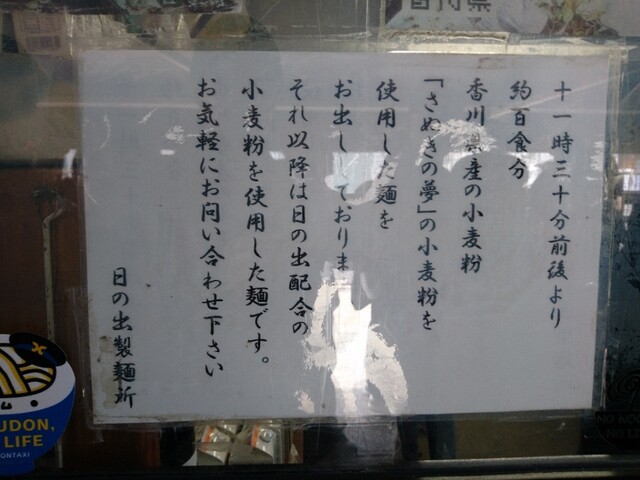 香川県
十一時三十分前後より
約百食分
香川県産の小麦粉
「さぬきの夢」の小麦粉を
使用した麺を
お出ししておりま
それ以降は日の出配合の
小麦粉を使用した麺です。
お気軽にお問い合わせ下さい
日の出製麺所
UDON,
LIFE
ONTAXI